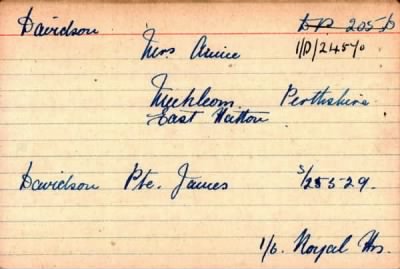 Davidson DP 205/6
Mrs Annie 1/D/2457/0
Meikleour Perthshire
East Hutton
Davidson Pte. James S/25529.
1/6. Royal Hrs.